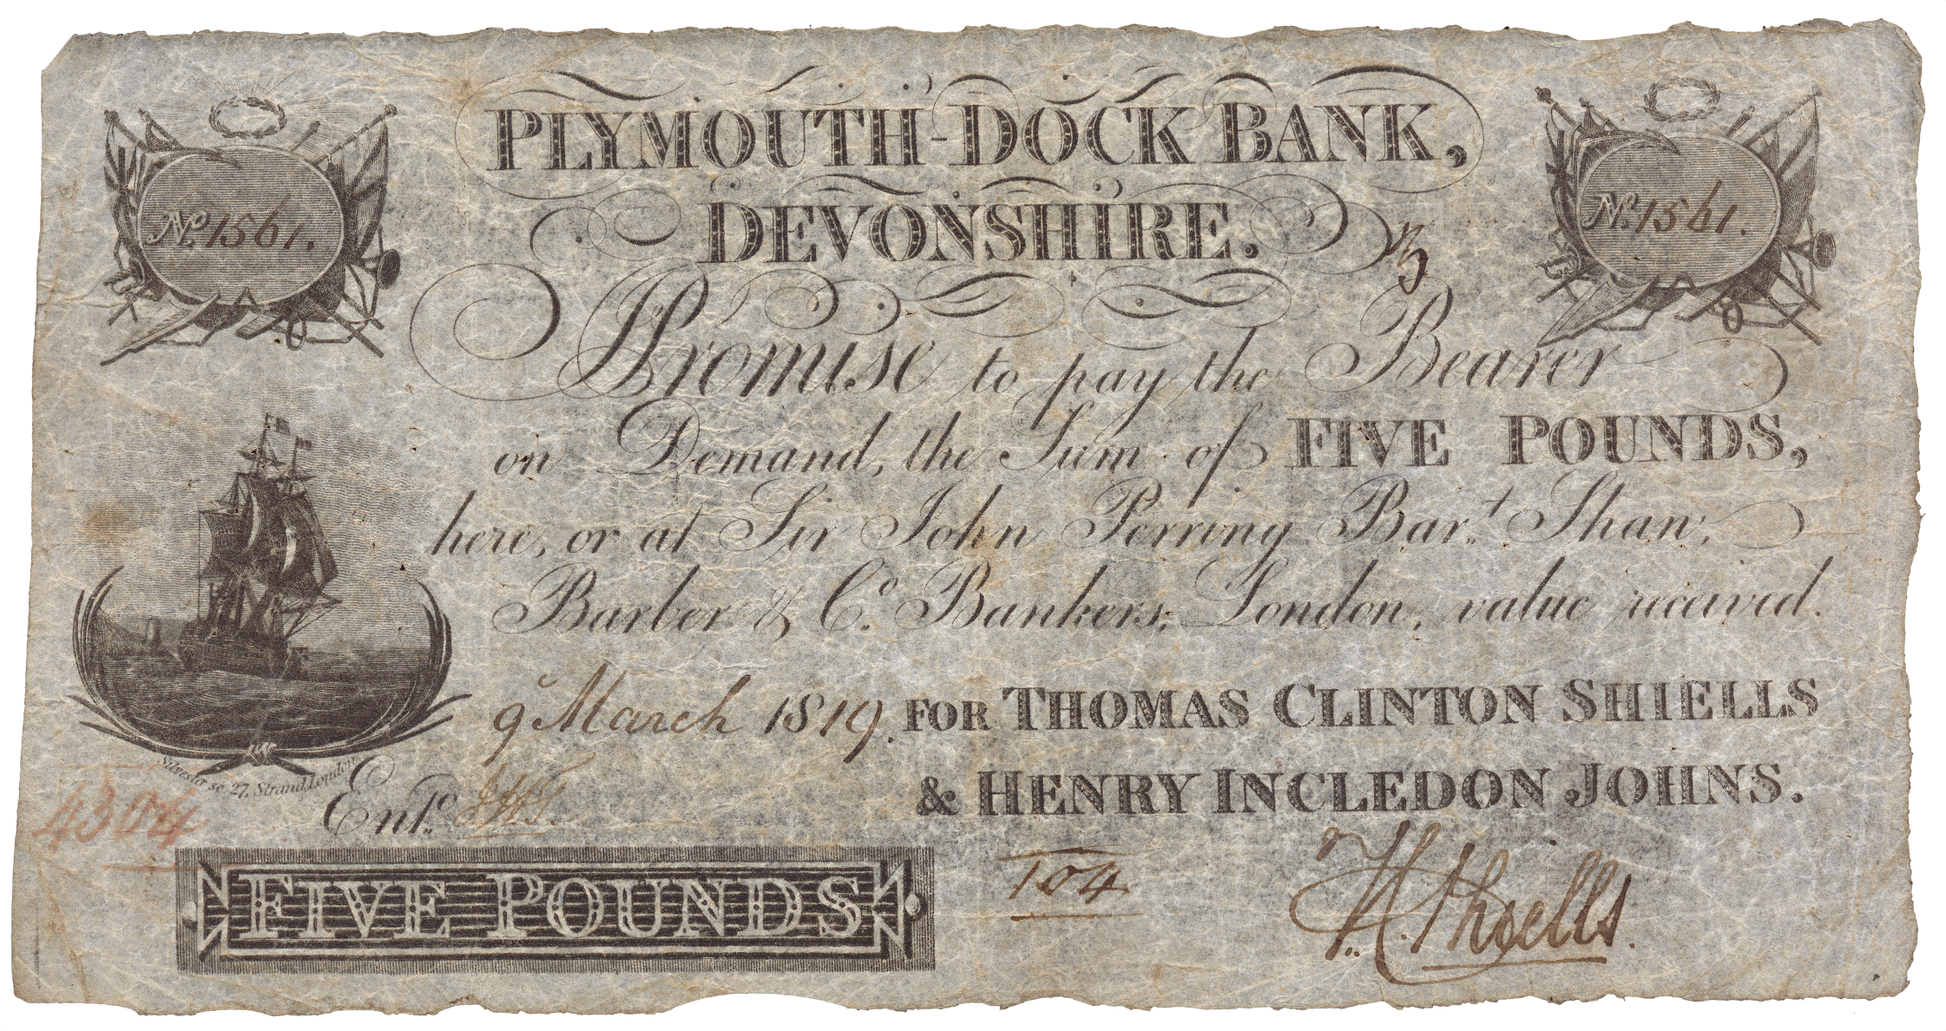 PLYMOUTH-DOCK BANK,
DEVONSHIRE.
No. 1561.
No. 1561.
I Promise to pay the Bearer
on Demand, the Sum of FIVE POUNDS,
here, or at Sir John Perring Bar.t Shaw,
Barber & Co. Bankers, London, value received.
9 March 1819. FOR THOMAS CLINTON SHIELLS
& HENRY INCLEDON JOHNS.
Silvester sc. 27, Strand, London
4304
Ent.d
FIVE POUNDS
T04
Shiells